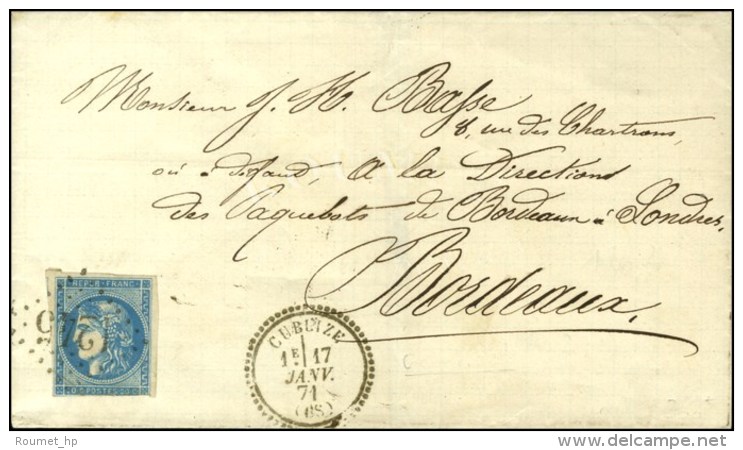 Monsieur J. H. Basse
8, rue des Chartrons,
où à défaud, à la Direction
des Paquebots de Bordeaux à Londres,
Bordeaux.
REPUB. FRANC.
POSTES
CUBLIZE
1E 17
JANV.
71
(68)
© Roumet_hp
www.delcampe.net